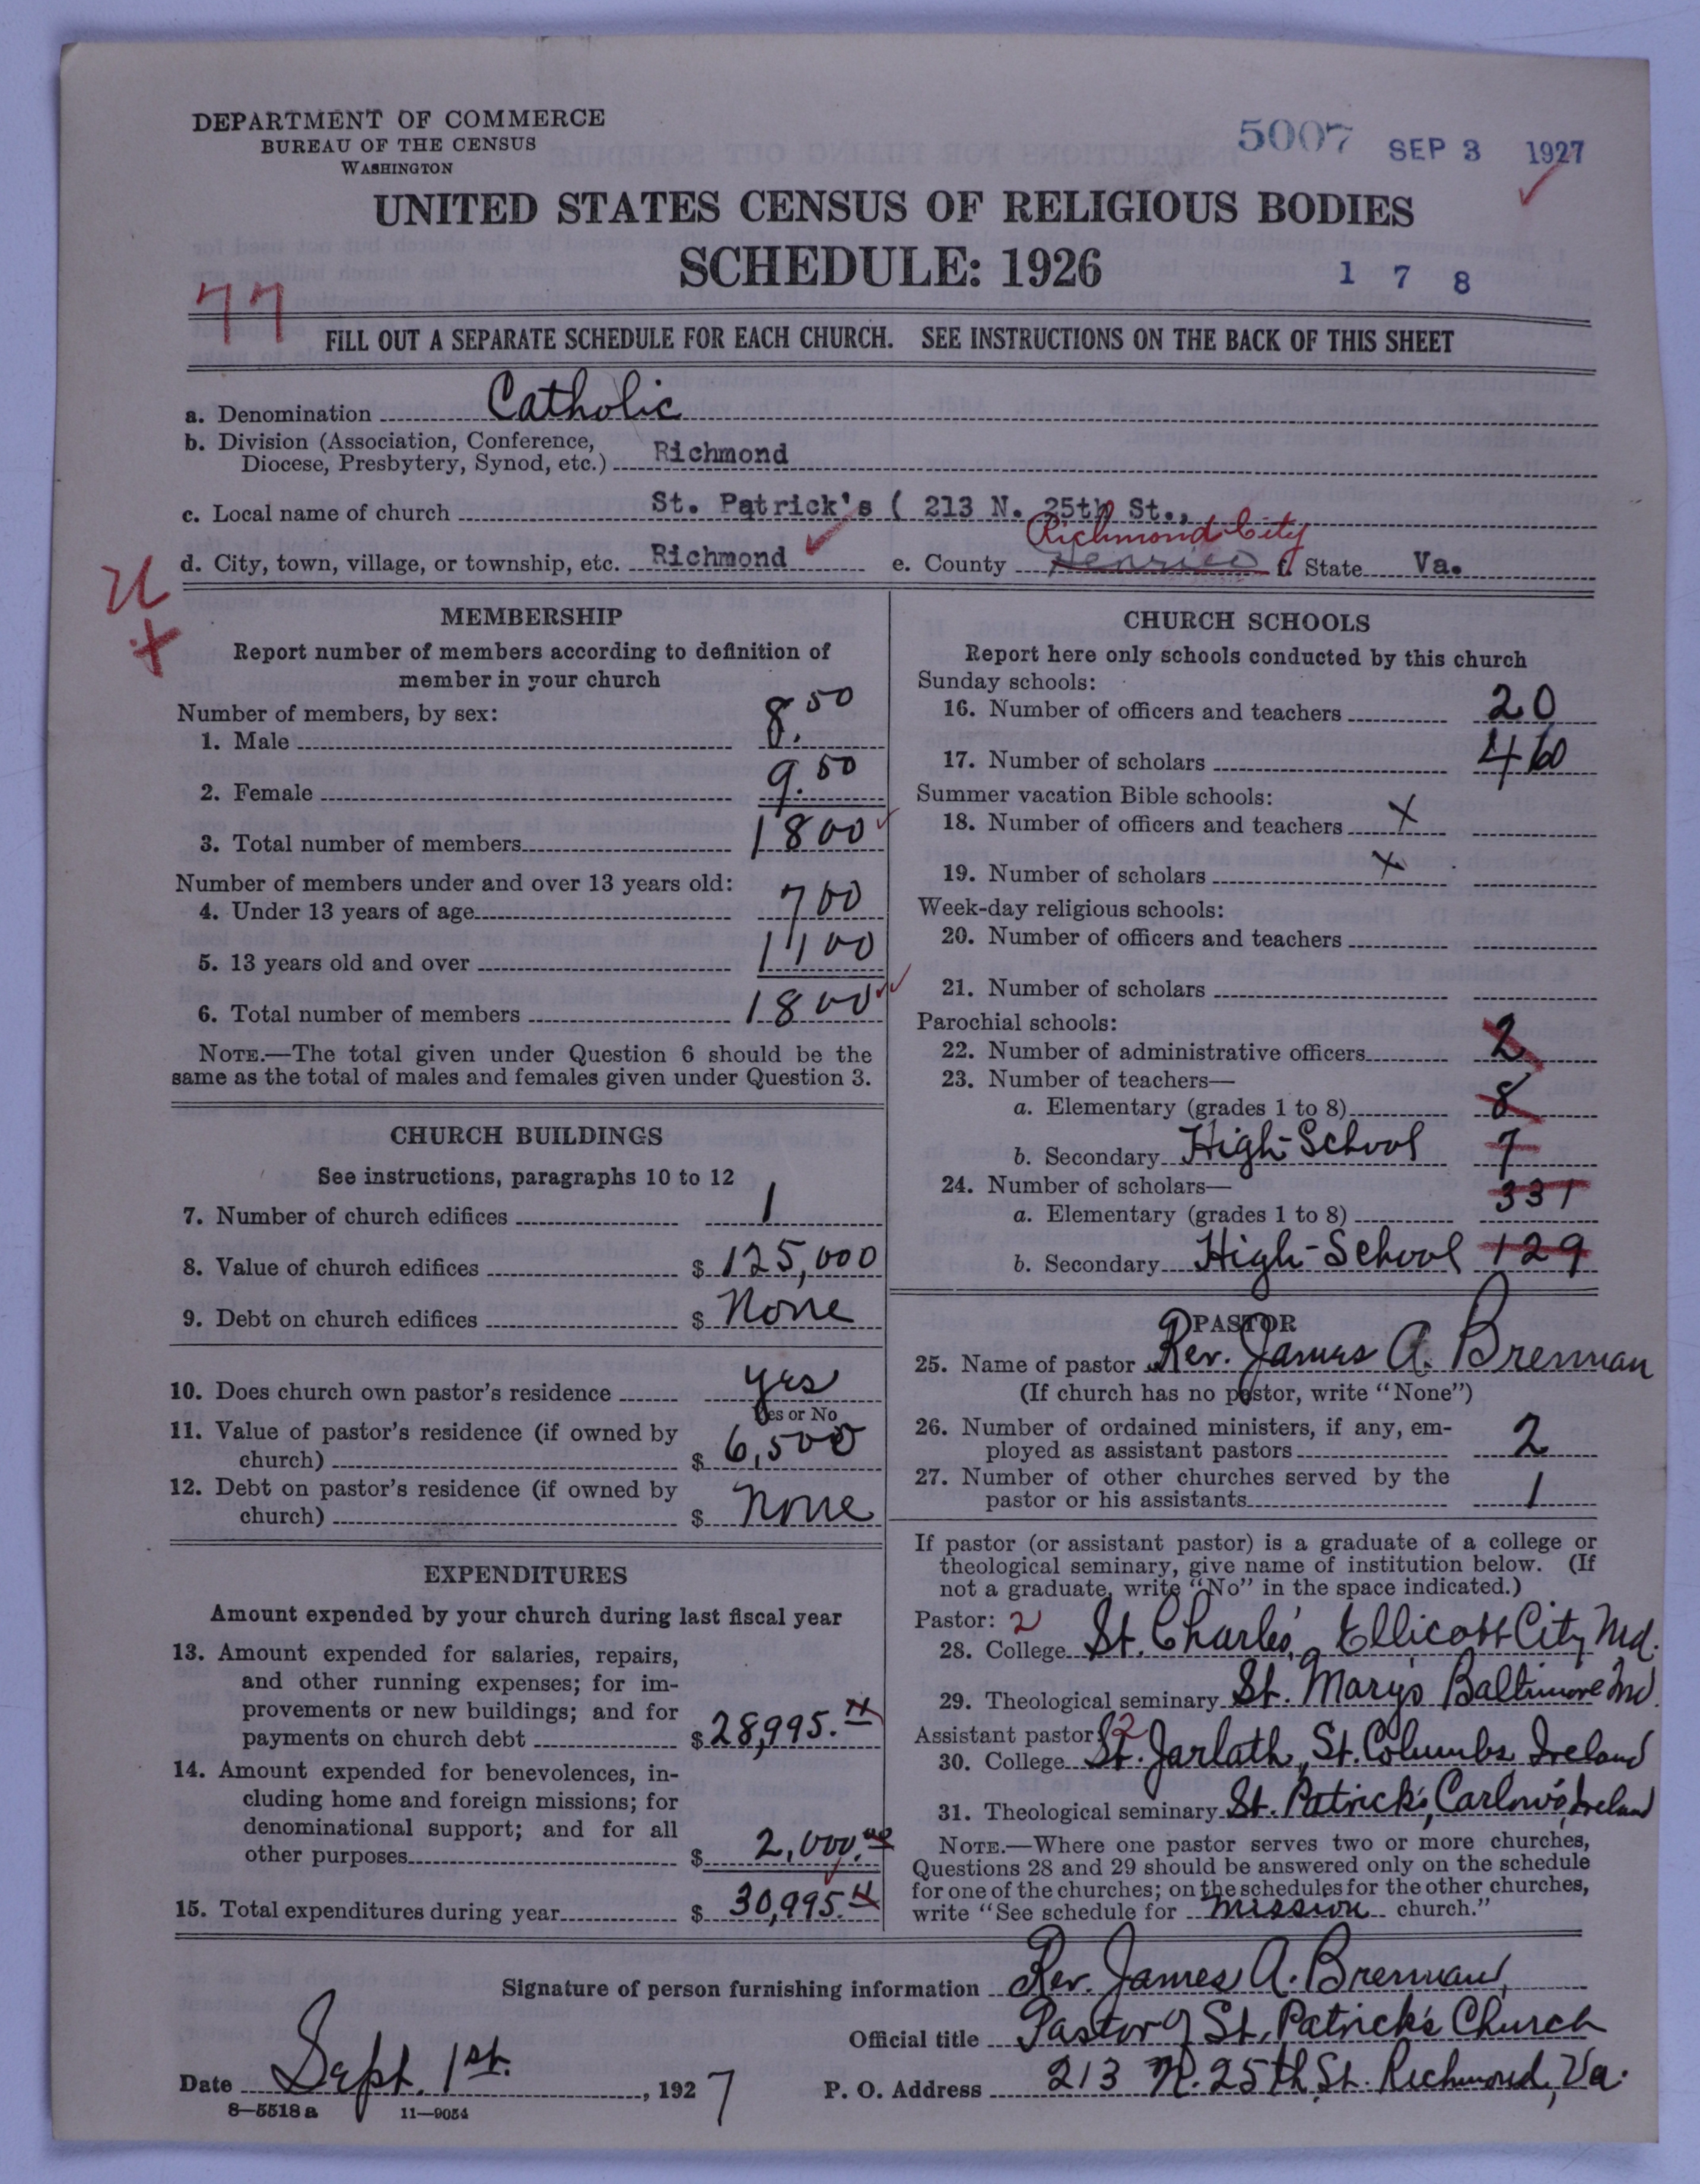 DEPARTMENT OF COMMERCE
BUREAU OF THE CENSUS
WASHINGTON
5007 SEP 3 1927
UNITED STATES CENSUS OF RELIGIOUS BODIES
SCHEDULE: 1926
1 7 8
77
FILL OUT A SEPARATE SCHEDULE FOR EACH CHURCH. SEE INSTRUCTIONS ON THE BACK OF THIS SHEET
a. Denomination Catholic
b. Division (Association, Conference,
Diocese, Presbytery, Synod, etc.) Richmond
c. Local name of church St. Patrick's ( 213 N. 25th St.,
Richmond City
d. City, town, village, or township, etc. Richmond e. County Henrico f. State Va.
MEMBERSHIP
Report number of members according to definition of
member in your church
Number of members, by sex:
1. Male 8.50
2. Female 9.50
3. Total number of members 1800
Number of members under and over 13 years old:
4. Under 13 years of age 700
5. 13 years old and over 1100
6. Total number of members 1800
NOTE.—The total given under Question 6 should be the
same as the total of males and females given under Question 3.
CHURCH BUILDINGS
See instructions, paragraphs 10 to 12
7. Number of church edifices 1
8. Value of church edifices $ 125,000
9. Debt on church edifices $ None
10. Does church own pastor's residence yes
Yes or No
11. Value of pastor's residence (if owned by
church) $ 6,500
12. Debt on pastor's residence (if owned by
church) $ None
EXPENDITURES
Amount expended by your church during last fiscal year
13. Amount expended for salaries, repairs,
and other running expenses; for im-
provements or new buildings; and for
payments on church debt $ 28,995.11
14. Amount expended for benevolences, in-
cluding home and foreign missions; for
denominational support; and for all
other purposes $ 2,000.00
15. Total expenditures during year $ 30,995.11
CHURCH SCHOOLS
Report here only schools conducted by this church
Sunday schools:
16. Number of officers and teachers 20
17. Number of scholars 460
Summer vacation Bible schools:
18. Number of officers and teachers x
19. Number of scholars x
Week-day religious schools:
20. Number of officers and teachers
21. Number of scholars
Parochial schools:
22. Number of administrative officers 2
23. Number of teachers—
a. Elementary (grades 1 to 8) 8
b. Secondary High-School 7
24. Number of scholars—
a. Elementary (grades 1 to 8) 331
b. Secondary High-School 129
PASTOR
25. Name of pastor Rev. James A. Brennan
(If church has no pastor, write "None")
26. Number of ordained ministers, if any, em-
ployed as assistant pastors 2
27. Number of other churches served by the
pastor or his assistants 1
If pastor (or assistant pastor) is a graduate of a college or
theological seminary, give name of institution below. (If
not a graduate, write "No" in the space indicated.)
Pastor: 2
28. College St. Charles', Ellicott City Md.
29. Theological seminary St. Mary's Baltimore Md.
Assistant pastor: 2
30. College St. Jarlath, St. Columbs Ireland
31. Theological seminary St. Patrick's, Carlow's, Ireland
NOTE.—Where one pastor serves two or more churches,
Questions 28 and 29 should be answered only on the schedule
for one of the churches; on the schedules for the other churches,
write "See schedule for mission church."
Signature of person furnishing information Rev. James A. Brennan,
Official title Pastor of St. Patrick's Church
Date Sept. 1st. , 1927 P. O. Address 213 N. 25th St. Richmond, Va.
8—5518 a 11—9054